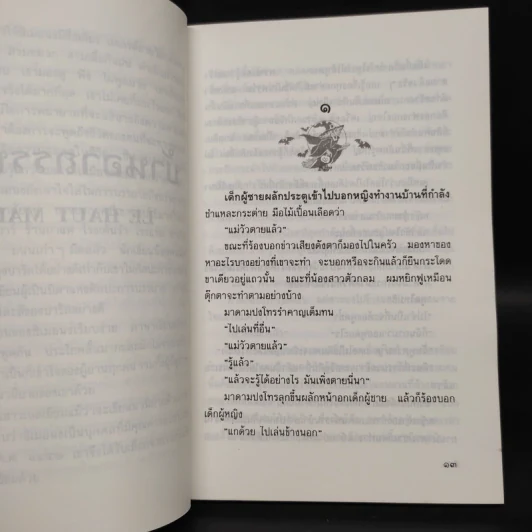 ๑
เด็กผู้ชายผลักประตูเข้าไปบอกหญิงทำงานบ้านที่กำลัง
ชำแหละกระต่าย มือไม้เปื้อนเลือดว่า
“แม่วัวตายแล้ว”
ขณะที่ร้องบอกข่าวเสียงดังตาก็มองไปในครัว มองหาของ
หาอะไรบางอย่างที่เขาจะทำ จะบอกหรือจะกินแล้วก็ยืนกระโดด
ขาเดียวอยู่แถวนั้น ขณะที่น้องสาวตัวกลม ผมหยิกฟูเหมือน
ตุ๊กตาจะทำตามอย่างบ้าง
มาดามปงโทรรำคาญเต็มทน
“ไปเล่นที่อื่น”
“แม่วัวตายแล้ว”
“รู้แล้ว”
“แล้วจะรู้ได้อย่างไร มันเพิ่งตายนี่นา”
มาดามปงโทรลุกขึ้นผลักหน้าอกเด็กผู้ชาย แล้วก็ร้องบอก
เด็กผู้หญิง
“แกด้วย ไปเล่นข้างนอก”
๑๓